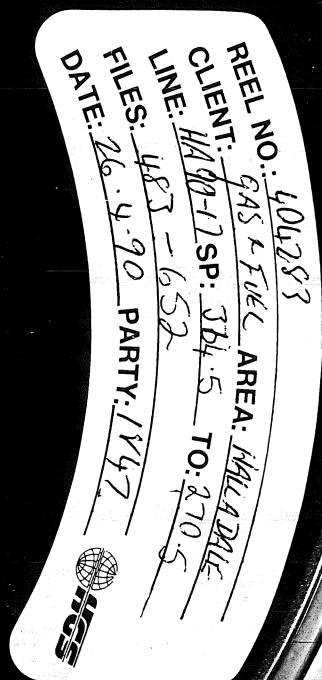 REEL NO.: 404283
CLIENT: GAS & FUEL AREA: HALLADALE
LINE: HA90-17 SP: 364.5 TO: 270.5
FILES: 483 - 652
DATE: 26.4.90 PARTY: 1847
HGS